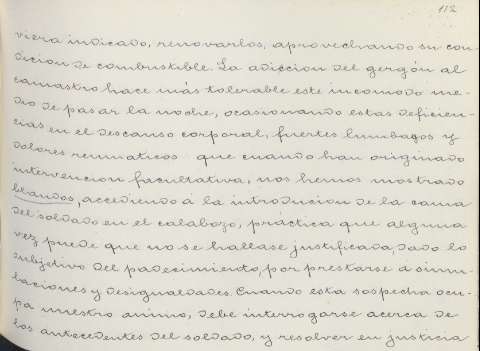 112
viera indicado, renovarlos, aprovechando su con-
dicion de combustible. La adiccion del gergón al
camastro hace más tolerable este incomodo me-
dio de pasar la noche, ocasionando estas deficien-
cias en el descanso corporal, fuertes lumbagos y
dolores reumaticos que cuando han originado
intervencion facultativa, nos hemos mostrado
blandos, accediendo á la introducion de la cama
del soldado en el calabozo, práctica que alguna
vez puede que no se hallase justificada, dado lo
subjetivo del padecimiento, por prestarse á simu-
laciones y desigualdades. Cuando esta sospecha ocu-
pa nuestro animo, debe interrogarse acerca de
los antecedentes del soldado, y resolver en justicia